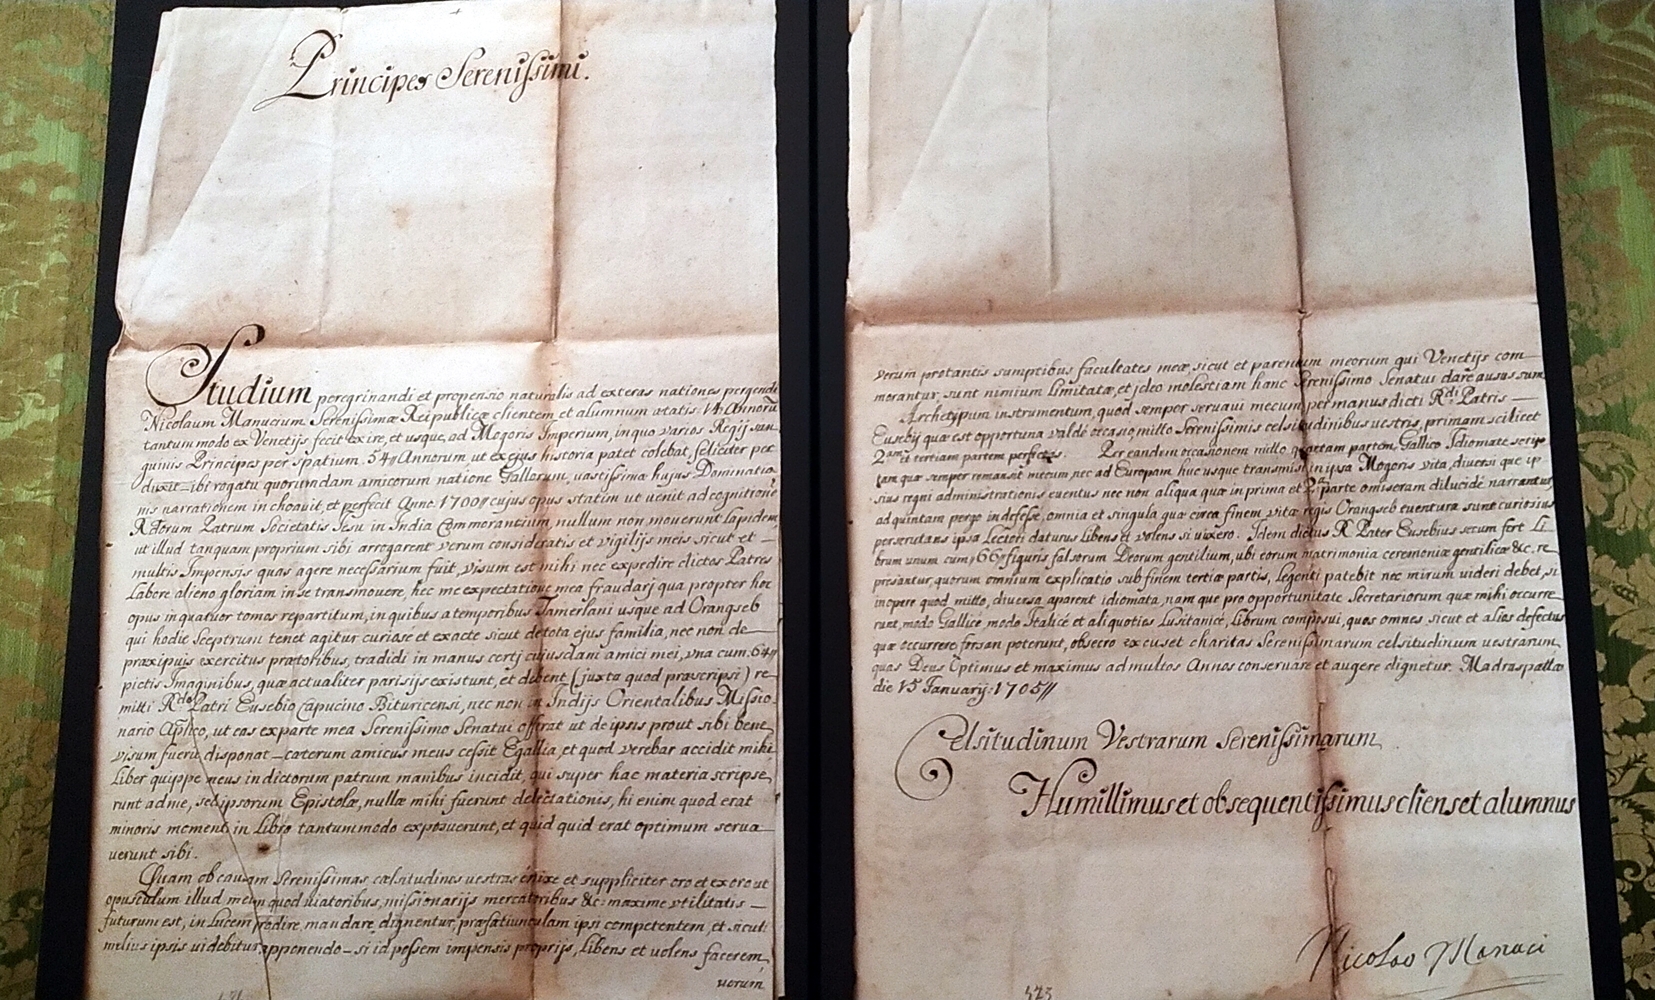 Principes Serenissimi.
Studium peregrinandi et propensio naturalis ad exteras nationes pergendi
Nicolaum Manucium Serenissimæ Reipublicæ clientem et alumnum ætatis 14 Annorū
tantum modo ex Venetijs fecit exire, et usque, ad Mogoris Imperium, in quo varios Regij san
guinis Principes per spatium .54 Annorum ut ex ejus historia patet colebat, feliciter per
duxit ibi rogatu quorumdam amicorum natione Gallorum, vastissimæ hujus Dominatio
nis narrationem inchoavit, et perfecit Anno. 1700 cujus opus statim ut venit ad cognitionē
Rdorum Patrum Societatis Jesu in India Commorantium, nullum non moverunt lapidem
ut illud tanquam proprium sibi arrogarent verum consideratis et vigilijs meis sicut et —
multis Impensis quas agere necessarium fuit, visum est mihi nec expedire dictos Patres
Labore alieno gloriam in se transmovere, hec me expectatione mea fraudarj qua propter hoc
opus in quatuor tomos repartitum, in quibus a temporibus Tamerlani usque ad Orangseb
qui hodie Sceptrum tenet agitur curiose et exacte sicut de tota ejus familia, nec non de
præxipuis exercitus prætoribus, tradidi in manus certj cujusdam amici mei, vna cum .64
pictis Imaginibus, quæ actualiter parisijs existunt, et debent (juxta quod præscripsi) re
mitti Rdo Patri Eusebio Capucino Bituricensi, nec non in Indijs Orientalibus Missio
nario Aplico, ut eas ex parte mea Serenissimo Senatui offerat ut de ipsis prout sibi bene
visum fuerit disponat — cæterum amicus meus cessit E gallia, et quod verebar accidit mihi
Liber quippe meus in dictorum patrum manibus incidit, qui super hac materia scripse,
runt ad me, sed ipsorum Epistolæ, nullæ mihi fuerunt delectationis, hi enim quod erat
minoris moment in Libro tantummodo exposuerunt, et quid quid erat optimum serua
uerunt sibi.
Quam ob causam Serenissimas cælsitudines vestras enixe et suppliciter oro et exoro ut
opusculum illud meum quod uiatoribus, missionarijs mercatoribus &c: maxime vtilitatis —
futurum est, in Lucem prodire, mandare, dignentur, præfatiunculam ipsi competentem, et sicuti
melius ipsis uidebitur apponendo — si id possem impensis proprijs, Libens et volens facerem,
uerum
verum protantis sumptibus facultates meæ sicut et parentum meorum qui Venetijs com—
morantur, sunt nimium limitatæ, et ideo molestiam hanc Serenissimo Senatui dare ausus sum
Archetypum instrumentum, quod semper seruaui mecum per manus dicti Rdi Patris —
Eusebij quæ est opportuna valdè occasio, mitto Serenissimis celsitudinibus vestris, primam scilicet
2am et tertiam partem perfectas. Per eandem occasionem mitto quartam partem Gallico Idiomate scrip
tam quæ semper remansit mecum nec ad Europam huc usque transmisi in ipsa Mogoris vita, diversi que ip
sius regni administrationis eventus nec non aliqua quæ in prima et 2a parte omiseram dilucidè narrantur
ad quintam pergo indefesse, omnia et singula quæ circa finem vitæ regis Orangseb eventura sunt curiosius
perscrutans ipsa Lectori daturus Libens et volens si uixero. Idem dictus R. Pater Eusebius secum fert Li
brum unum cum, 66 figuris falsorum Deorum gentilium, ubi eorum matrimonia ceremoniæ gentilicæ &c. re
præsantur, quorum omnium explicatio sub finem tertiæ partis, Legenti patebit nec mirum videri debet, si
in opere quod mitto, diversa aparent idiomata, nam que pro opportunitate Secretariorum quæ mihi occurre
runt, modo Gallicè modo Italicè et aliquoties Lusitanicè, Librum composui, quos omnes, sicut et alios defectus
quæ occurrere forsan poterunt, obsecro excuset charitas Serenissimarum celsitudinum vestrarum,
quas Deus Optimus et maximus ad multos Annos conservare et augere dignetur. Madraspattæ
die 15 Januarij: 1705
Celsitudinum Vestrarum Serenissimarum
Humillimus et obsequentissimus cliens et alumnus
Nicolao Manuci
523